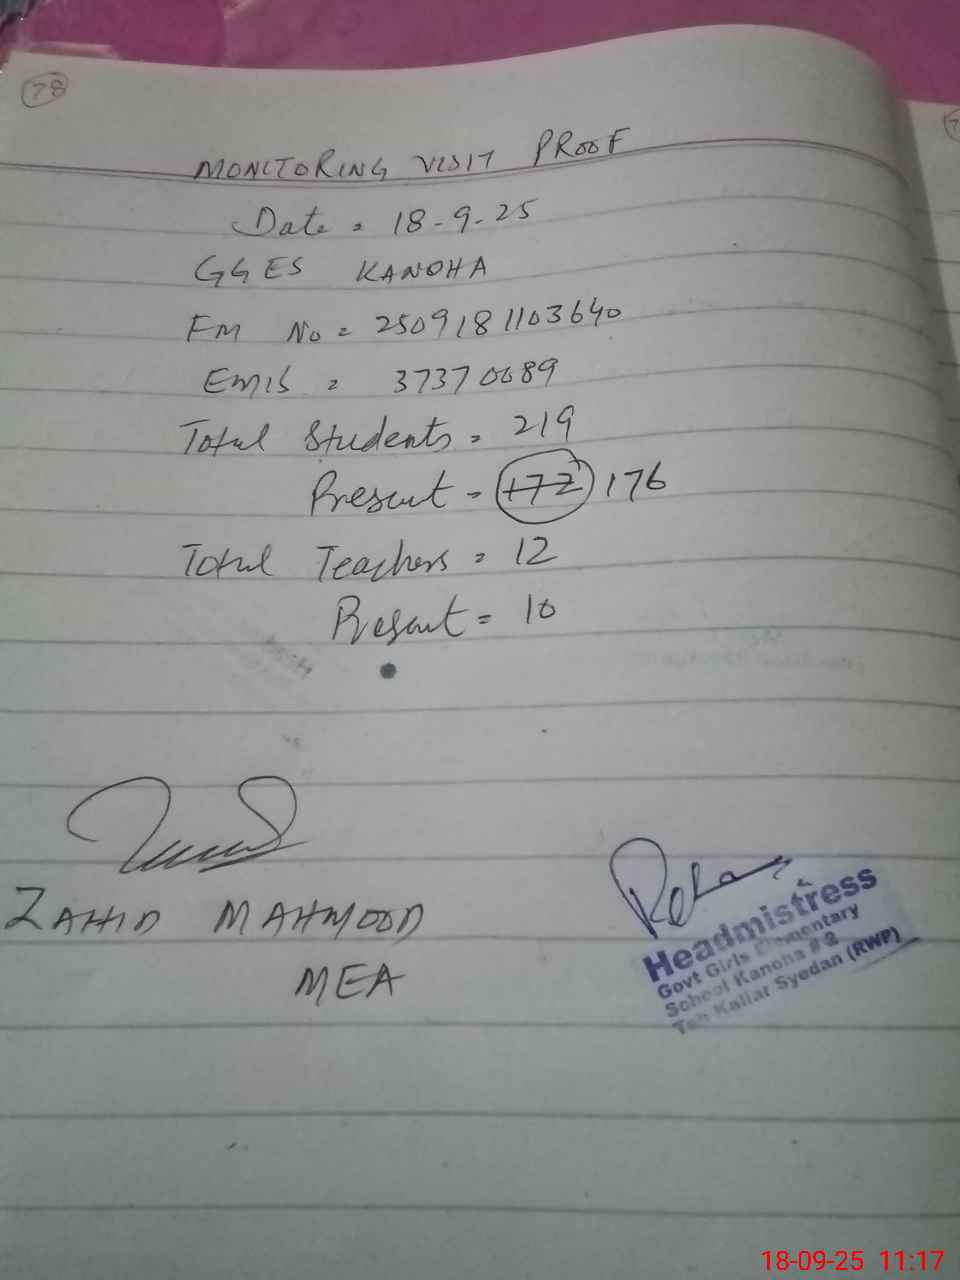 78
MONITORING VISIT PROOF
Date = 18-9-25
GGES KANOHA
FM No = 2509181103640
EMIS = 37370089
Total Students = 219
Present = 172 176
Total Teachers = 12
Present = 10
ZAHID MAHMOOD
MEA
Headmistress
Govt Girls Elementary
School Kanoha # 2
Teh Kallar Syedan (RWP)
18-09-25 11:17